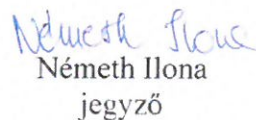 Németh Ilona
Németh Ilona
jegyző